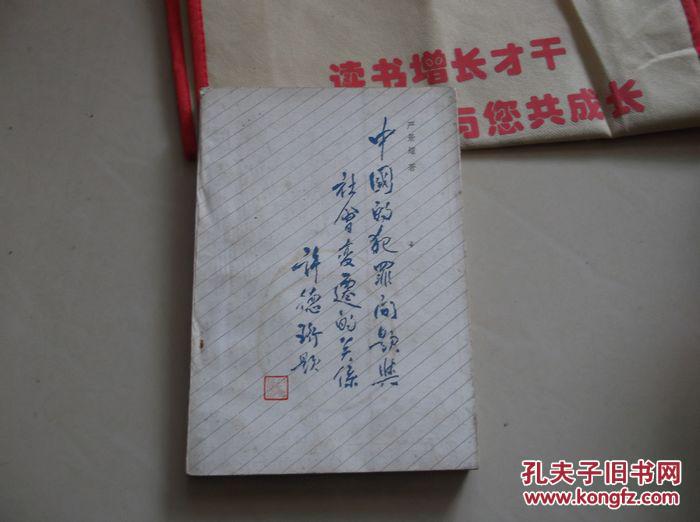 读书增长才干
与您共成长
严景耀 著
中國的犯罪問題與
社會变遷的关係
許德珩题
孔夫子旧书网
www.kongfz.com